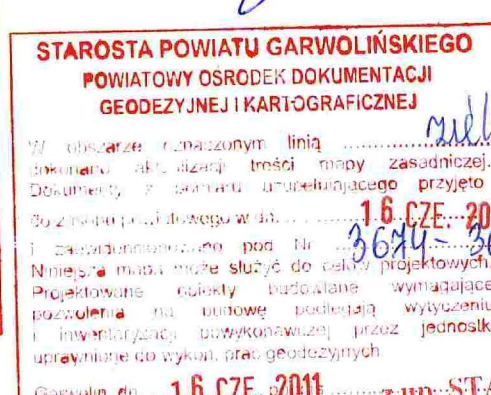 STAROSTA POWIATU GARWOLIŃSKIEGO
POWIATOWY OŚRODEK DOKUMENTACJI
GEODEZYJNEJ I KARTOGRAFICZNEJ
W obszarze oznaczonym linią
dokonano aktualizacji treści mapy zasadniczej.
Dokumenty z pomiaru uzupełniającego przyjęto
do zasobu powiatowego w dn. 16. CZE. 20
i zaewidencjonowano pod Nr 3674-36
Niniejsza mapa może służyć do celów projektowych.
Projektowane obiekty budowlane wymagające
pozwolenia na budowę podlegają wytyczeniu
i inwentaryzacji powykonawczej przez jednostk
uprawnione do wykon. prac geodezyjnych
Garwolin dn. 16 CZE. 2011 z up. STA